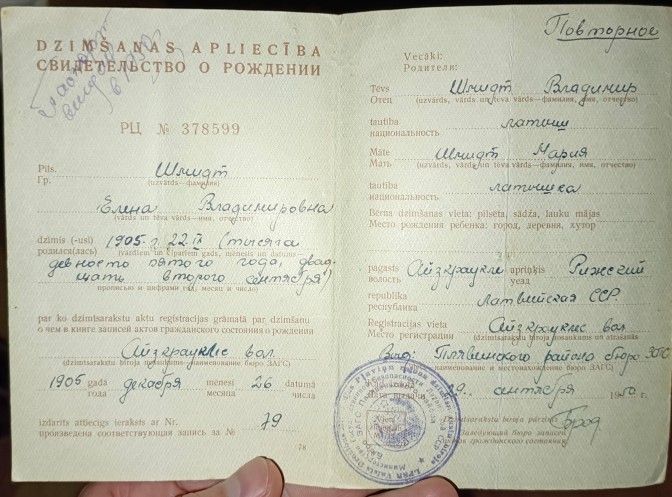 DZIMŠANAS APLIECĪBA
СВИДЕТЕЛЬСТВО О РОЖДЕНИИ
РЦ № 378599
Pils. Шмидт
Гр. (uzvārds—фамилия)
Елена Владимировна
(vārds un tēva vārds—имя, отчество)
dzimis (-usi) 1905 г. 22 IX (тысяча
родился(лась)
девятьсот пятого года, двад-
цать второго сентября)
прописью и цифрами год, месяц и число)
par ko dzimtsarakstu aktu reģistrācijas grāmatā par dzimšanu
о чем в книге записей актов гражданского состояния о рождении
Айзкраукле вол.
(dzimtsarakstu biroja nosaukums—наименование бюро ЗАГС)
1905 gada декабря mēnesī 26 datumā
года месяца числа
izdarīts attiecīgs ieraksts ar Nr. 79
произведена соответствующая запись за №
Повторное
Vecāki:
Родители:
Tēvs Шмидт Владимир
Отец (uzvārds, vārds un tēva vārds—фамилия, имя, отчество)
tautība латыш
национальность
Māte Шмидт Мария
Мать (uzvārds, vārds un tēva vārds—фамилия, имя, отчество)
tautība латышка
национальность
Bērna dzimšanas vieta: pilsēta, sādža, lauku mājas
Место рождения ребенка: город, деревня, хутор
pagasts Айзкраукле apriņķis Рижский
волость уезд
republika Латвийская ССР.
республика
Reģistrācijas vieta Айзкраукле вол.
Место регистрации (dzimtsarakstu biroja nosaukums un atrašanās
Выд: Плявинского района бюро ЗАГС
наименование и местонахождение бюро ЗАГС)
29. сентября 1950 г.
Dzimtsarakstu biroja pārzinis
Заведующий бюро записей
актов гражданского состояния